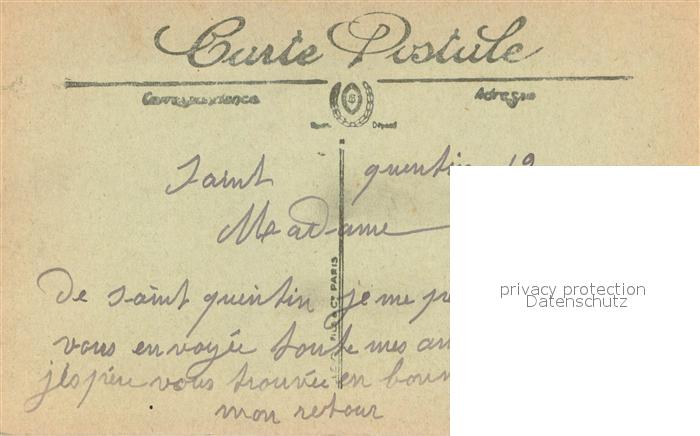 Carte Postale
Correspondance Adresse
Marque Déposé
Saint quentin 19
Madame
De saint quentin je me
vous envoyée toute mes
j'espére vous trouvée en
mon retour
FILS & Cie PARIS
privacy protection
Datenschutz